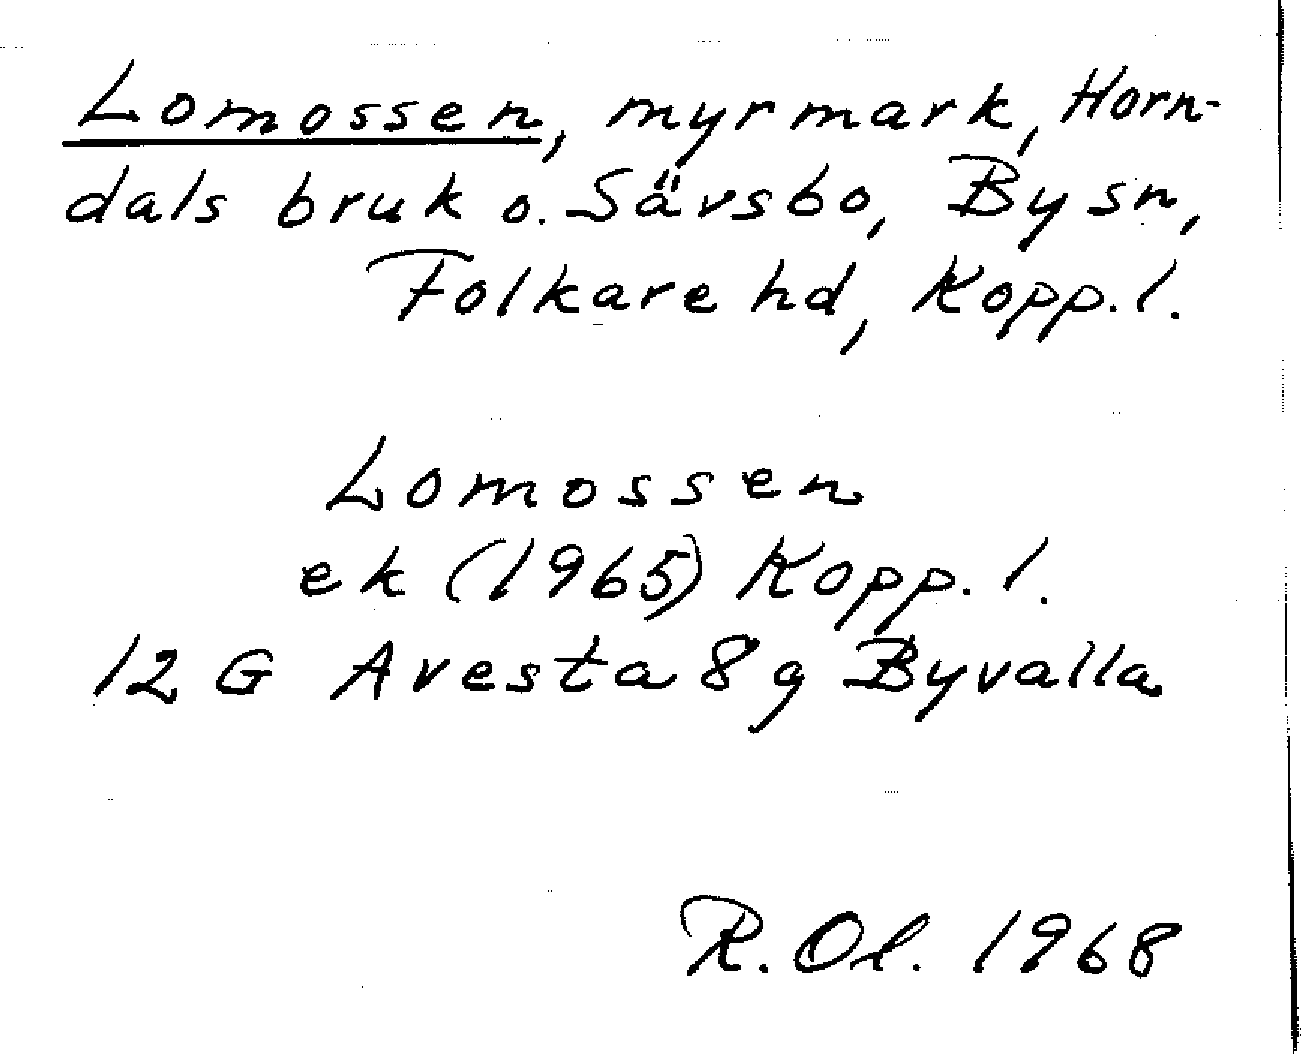 Lomossen, myrmark, Horn-
dals bruk o. Sävsbo, By sn,
Folkare hd, Kopp. l.
Lomossen
ek (1965) Kopp. l.
12 G Avesta 8 g Byvalla
R. Ol. 1968